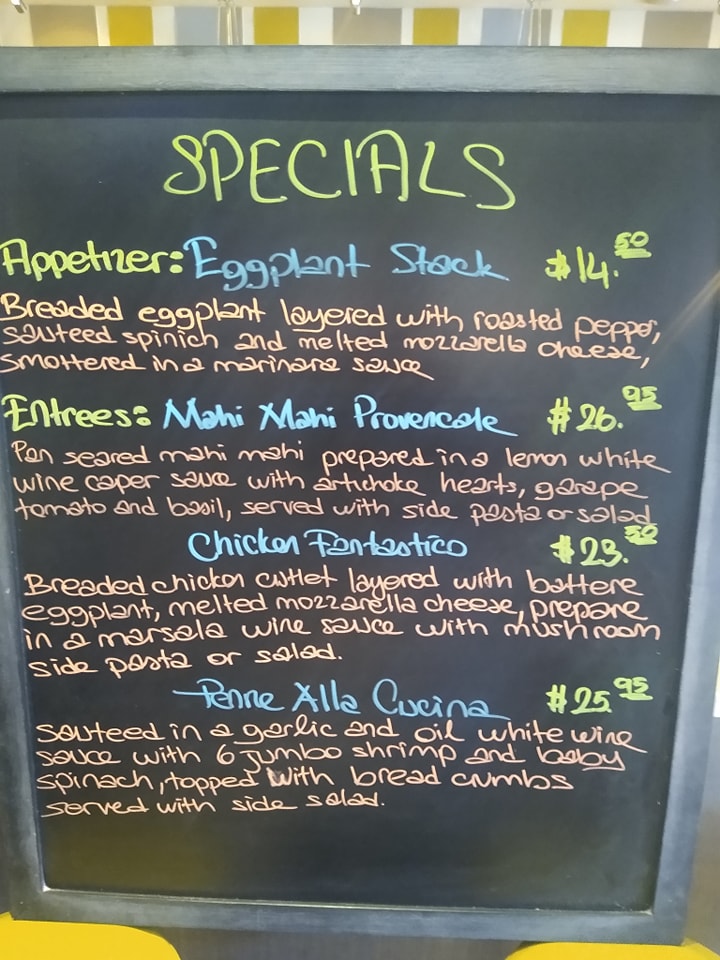 SPECIALS
Appetizer: Eggplant Stack $14.50
Breaded eggplant layered with roasted pepper,
sauteed spinich and melted mozzarella cheese,
smottered in a marinara sauce
Entrees: Mahi Mahi Provencale $26.95
Pan seared mahi mahi prepared in a lemon white
wine caper sauce with artichoke hearts, garape
tomato and basil, served with side pasta or salad
Chicken Fantastico $23.50
Breaded chicken cutlet layered with battere
eggplant, melted mozzarella cheese, prepare
in a marsala wine sauce with mushroom
side pasta or salad.
Penne Alla Cucina $25.95
sauteed in a garlic and oil white wine
sauce with 6 jumbo shrimp and baby
spinach, topped with bread crumbs
served with side salad.